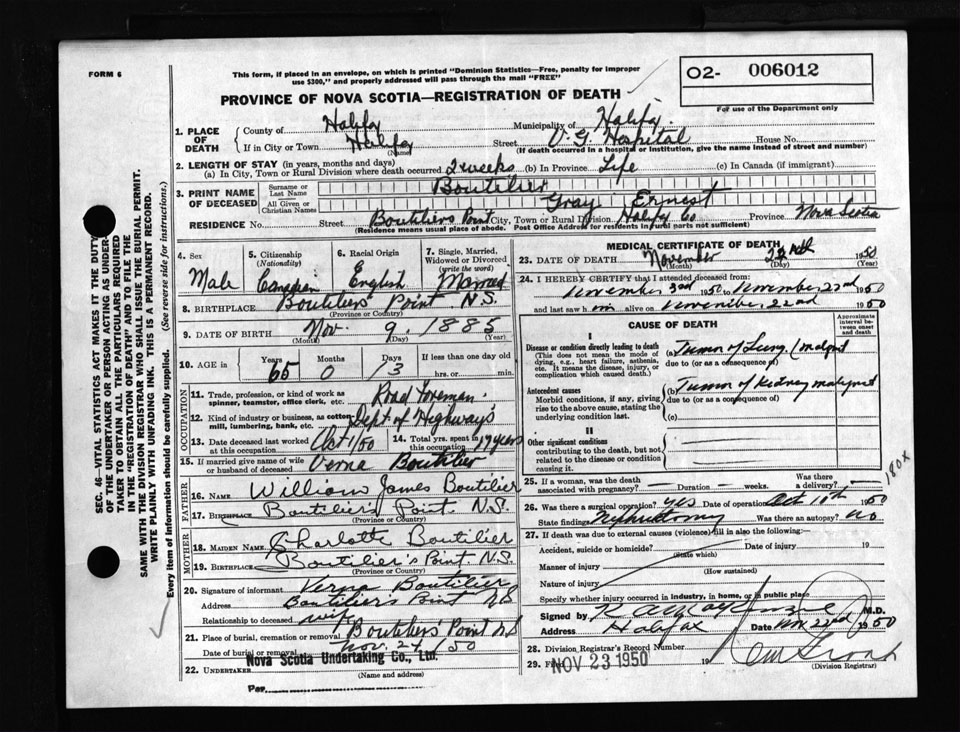 FORM 6
This form, if placed in an envelope, on which is printed "Dominion Statistics—Free, penalty for improper
use $300," and properly addressed will pass through the mail "FREE"
PROVINCE OF NOVA SCOTIA—REGISTRATION OF DEATH
O2- 006012
For use of the Department only
SEC. 46—VITAL STATISTICS ACT MAKES IT THE DUTY
OF THE UNDERTAKER OR PERSON ACTING AS UNDER-
TAKER TO OBTAIN ALL THE PARTICULARS REQUIRED
IN THE "REGISTRATION OF DEATH" AND TO FILE THE
SAME WITH THE DIVISION REGISTRAR WHO SHALL ISSUE THE BURIAL PERMIT.
WRITE PLAINLY WITH UNFADING INK. THIS IS A PERMANENT RECORD.
Every item of information should be carefully supplied. (See reverse side for instructions.)
1. PLACE OF DEATH
County of Halifax Municipality of Halifax
If in City or Town Halifax (Name) Street V. G. Hospital House No.
(If death occurred in a hospital or institution, give the name instead of street and number)
2. LENGTH OF STAY (in years, months and days)
(a) In City, Town or Rural Division where death occurred 2 weeks (b) In Province Life (c) In Canada (if immigrant)
3. PRINT NAME OF DECEASED
Surname or Last Name Boutilier
All Given or Christian Names Gray Ernest
RESIDENCE No. Street Boutiliers Point City, Town or Rural Division Halifax Co Province Nova Scotia
(Residence means usual place of abode. Post Office Address for residents in rural parts not sufficient)
4. Sex Male
5. Citizenship (Nationality) Canadian
6. Racial Origin English
7. Single, Married, Widowed or Divorced (write the word) Married
8. BIRTHPLACE Boutiliers Point N.S.
(Province or Country)
9. DATE OF BIRTH Nov. 9, 1885
(Month) (Day) (Year)
10. AGE in Years 65 Months 0 Days 13 If less than one day old
hrs. or min.
OCCUPATION
11. Trade, profession, or kind of work as spinner, teamster, office clerk, etc. Road Foreman
12. Kind of industry or business, as cotton mill, lumbering, bank, etc. Dept of Highways
13. Date deceased last worked at this occupation Oct 1/50
14. Total yrs. spent in this occupation 17 years
15. If married give name of wife or husband of deceased Verna Boutilier
FATHER
16. NAME William James Boutilier
17. BIRTHPLACE Boutilier's Point. N.S.
(Province or Country)
MOTHER
18. MAIDEN NAME Charlotte Boutilier
19. BIRTHPLACE Boutilier's Point. N.S.
(Province or Country)
20. Signature of informant Verna Boutilier
Address Boutilier's Point NS
Relationship to deceased wife
21. Place of burial, cremation or removal Boutiliers' Point NS
Date of burial or removal Nov. 24/50
22. UNDERTAKER Nova Scotia Undertaking Co., Ltd.
(Name and address)
Per
MEDICAL CERTIFICATE OF DEATH
23. DATE OF DEATH November 22nd 1950
(Month) (Day) (Year)
24. I HEREBY CERTIFY that I attended deceased from:
November 3rd 1950 to November 22nd 1950
and last saw him alive on November 22nd 1950
CAUSE OF DEATH
Approximate interval between onset and death
I
Disease or condition directly leading to death
(This does not mean the mode of dying, e.g., heart failure, asthenia, etc. It means the disease, injury, or complication which caused death.)
(a) Tumor of Lung (malignant
due to (or as a consequence of)
Antecedent causes
Morbid conditions, if any, giving rise to the above cause, stating the underlying condition last.
(b) Tumor of Kidney malignant
due to (or as a consequence of)
(c)
II
Other significant conditions
contributing to the death, but not related to the disease or condition causing it.
180x
25. If a woman, was the death associated with pregnancy? — Duration — weeks. Was there a delivery? —
26. Was there a surgical operation? yes Date of operation Oct 10th 1950
State findings Nephrectomy Was there an autopsy? no
27. If death was due to external causes (violence) fill in also the following:
Accident, suicide or homicide? Date of injury 19
(State which)
Manner of injury
(How sustained)
Nature of injury
Specify whether injury occurred in industry, in home, or in public place
Signed by M.D.
Address Halifax Date Nov 22nd 1950
28. Division Registrar's Record Number
29. Filed NOV 23 1950 19
(Division Registrar)